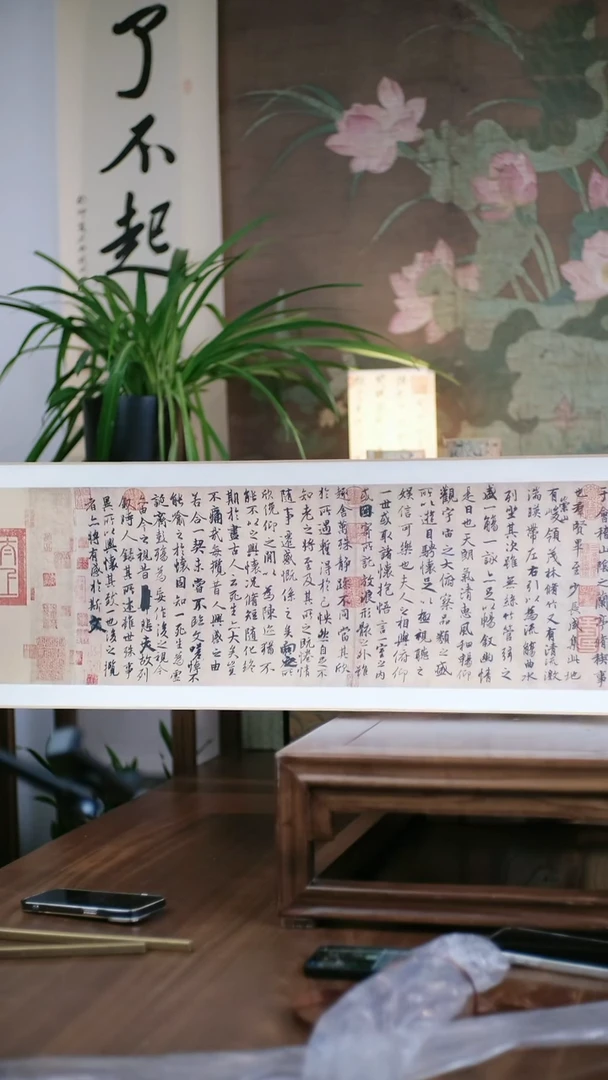 了不起
于會稽山陰之蘭亭脩稧事
也群賢畢至少長咸集此地
有崇山峻領茂林脩竹又有清流激
湍暎帶左右引以為流觴曲水
列坐其次雖無絲竹管弦之
盛一觴一詠亦足以暢敘幽情
是日也天朗氣清惠風和暢仰
觀宇宙之大俯察品類之盛
所以遊目騁懷足以極視聽之
娛信可樂也夫人之相與俯仰
一世或取諸懷抱悟言一室之內
或因寄所託放浪形骸之外雖
趣舍萬殊靜躁不同當其欣
於所遇蹔得於己怏然自足不
知老之將至及其所之既惓情
隨事遷感慨係之矣向之所
欣俛仰之閒以為陳迹猶不
能不以之興懷況脩短隨化終
期於盡古人云死生亦大矣豈
不痛哉每攬昔人興感之由
若合一契未嘗不臨文嗟悼不
能喻之於懷固知一死生為虛
誕齊彭殤為妄作後之視今
亦由今之視昔悲夫故列
敘時人錄其所述雖世殊事
異所以興懷其致一也後之攬
者亦將有感於斯文